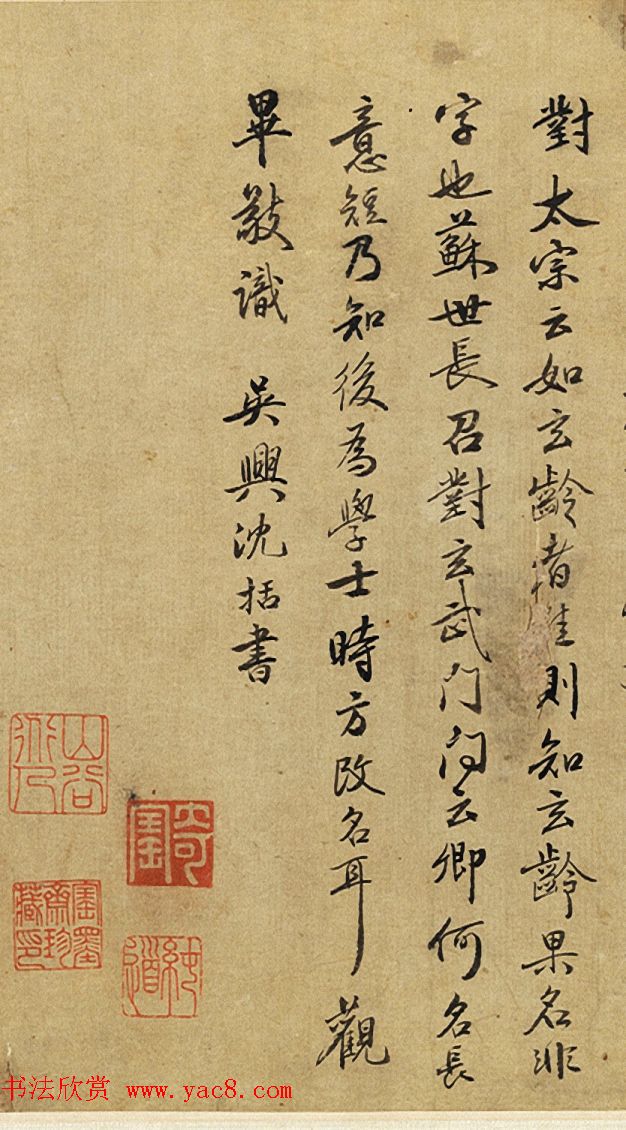 對太宗云如玄齡者惟則知玄齡果名非
字也蘇世長召對玄武門問云卿何名長
意短乃知後為學士時方改名耳觀
畢敬識 吳興沈括書
山谷
寶墨齋珍藏印
書法欣赏 www.yac8.com